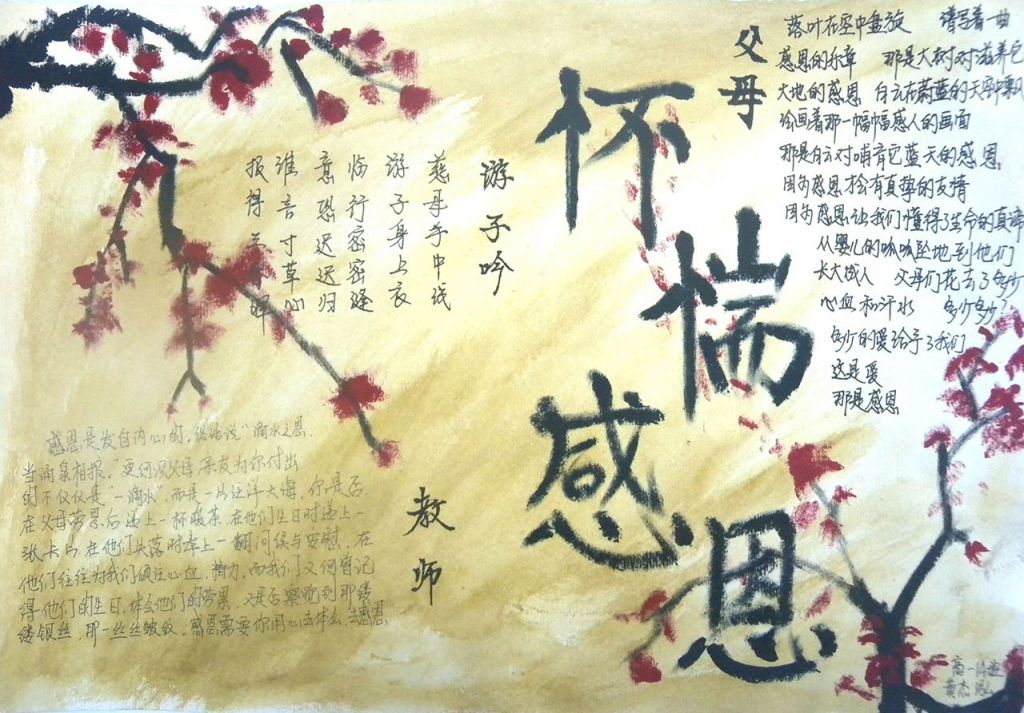 怀惴感恩
父母
落叶在空中盘旋 谱写着一曲
感恩的乐章 那是大树对滋养它
大地的感恩 白云在蔚蓝的天空中飘
绘画着那一幅幅感人的画面
那是白云对哺育它蓝天的感恩
因为感恩才会有真挚的友情
因为感恩让我们懂得了生命的真谛
从婴儿的呱呱坠地到他们
长大成人 父母们花去了多少
心血和汗水 多少多少？
多少的爱给予了我们
这是爱
那是感恩
游子吟
慈母手中线
游子身上衣
临行密密缝
意恐迟迟归
谁言寸草心
报得三春晖
教师
感恩是发自内心的。俗话说“滴水之恩，
当涌泉相报。更何况父母，亲友为你付出
的不仅仅是“一滴水”，而是一片汪洋大海。你是否
在父母劳累后递上一杯暖茶，在他们生日时递上一
张卡片，在他们失落时奉上一翻问候与安慰，在
他们往往为我们倾注心血、精力，而我们又何曾记
得他们的生日，体会他们的劳累，又是否察觉到那缕
缕银丝，那一丝丝皱纹。感恩需要你用心去体会，去感恩
高一
黄杰